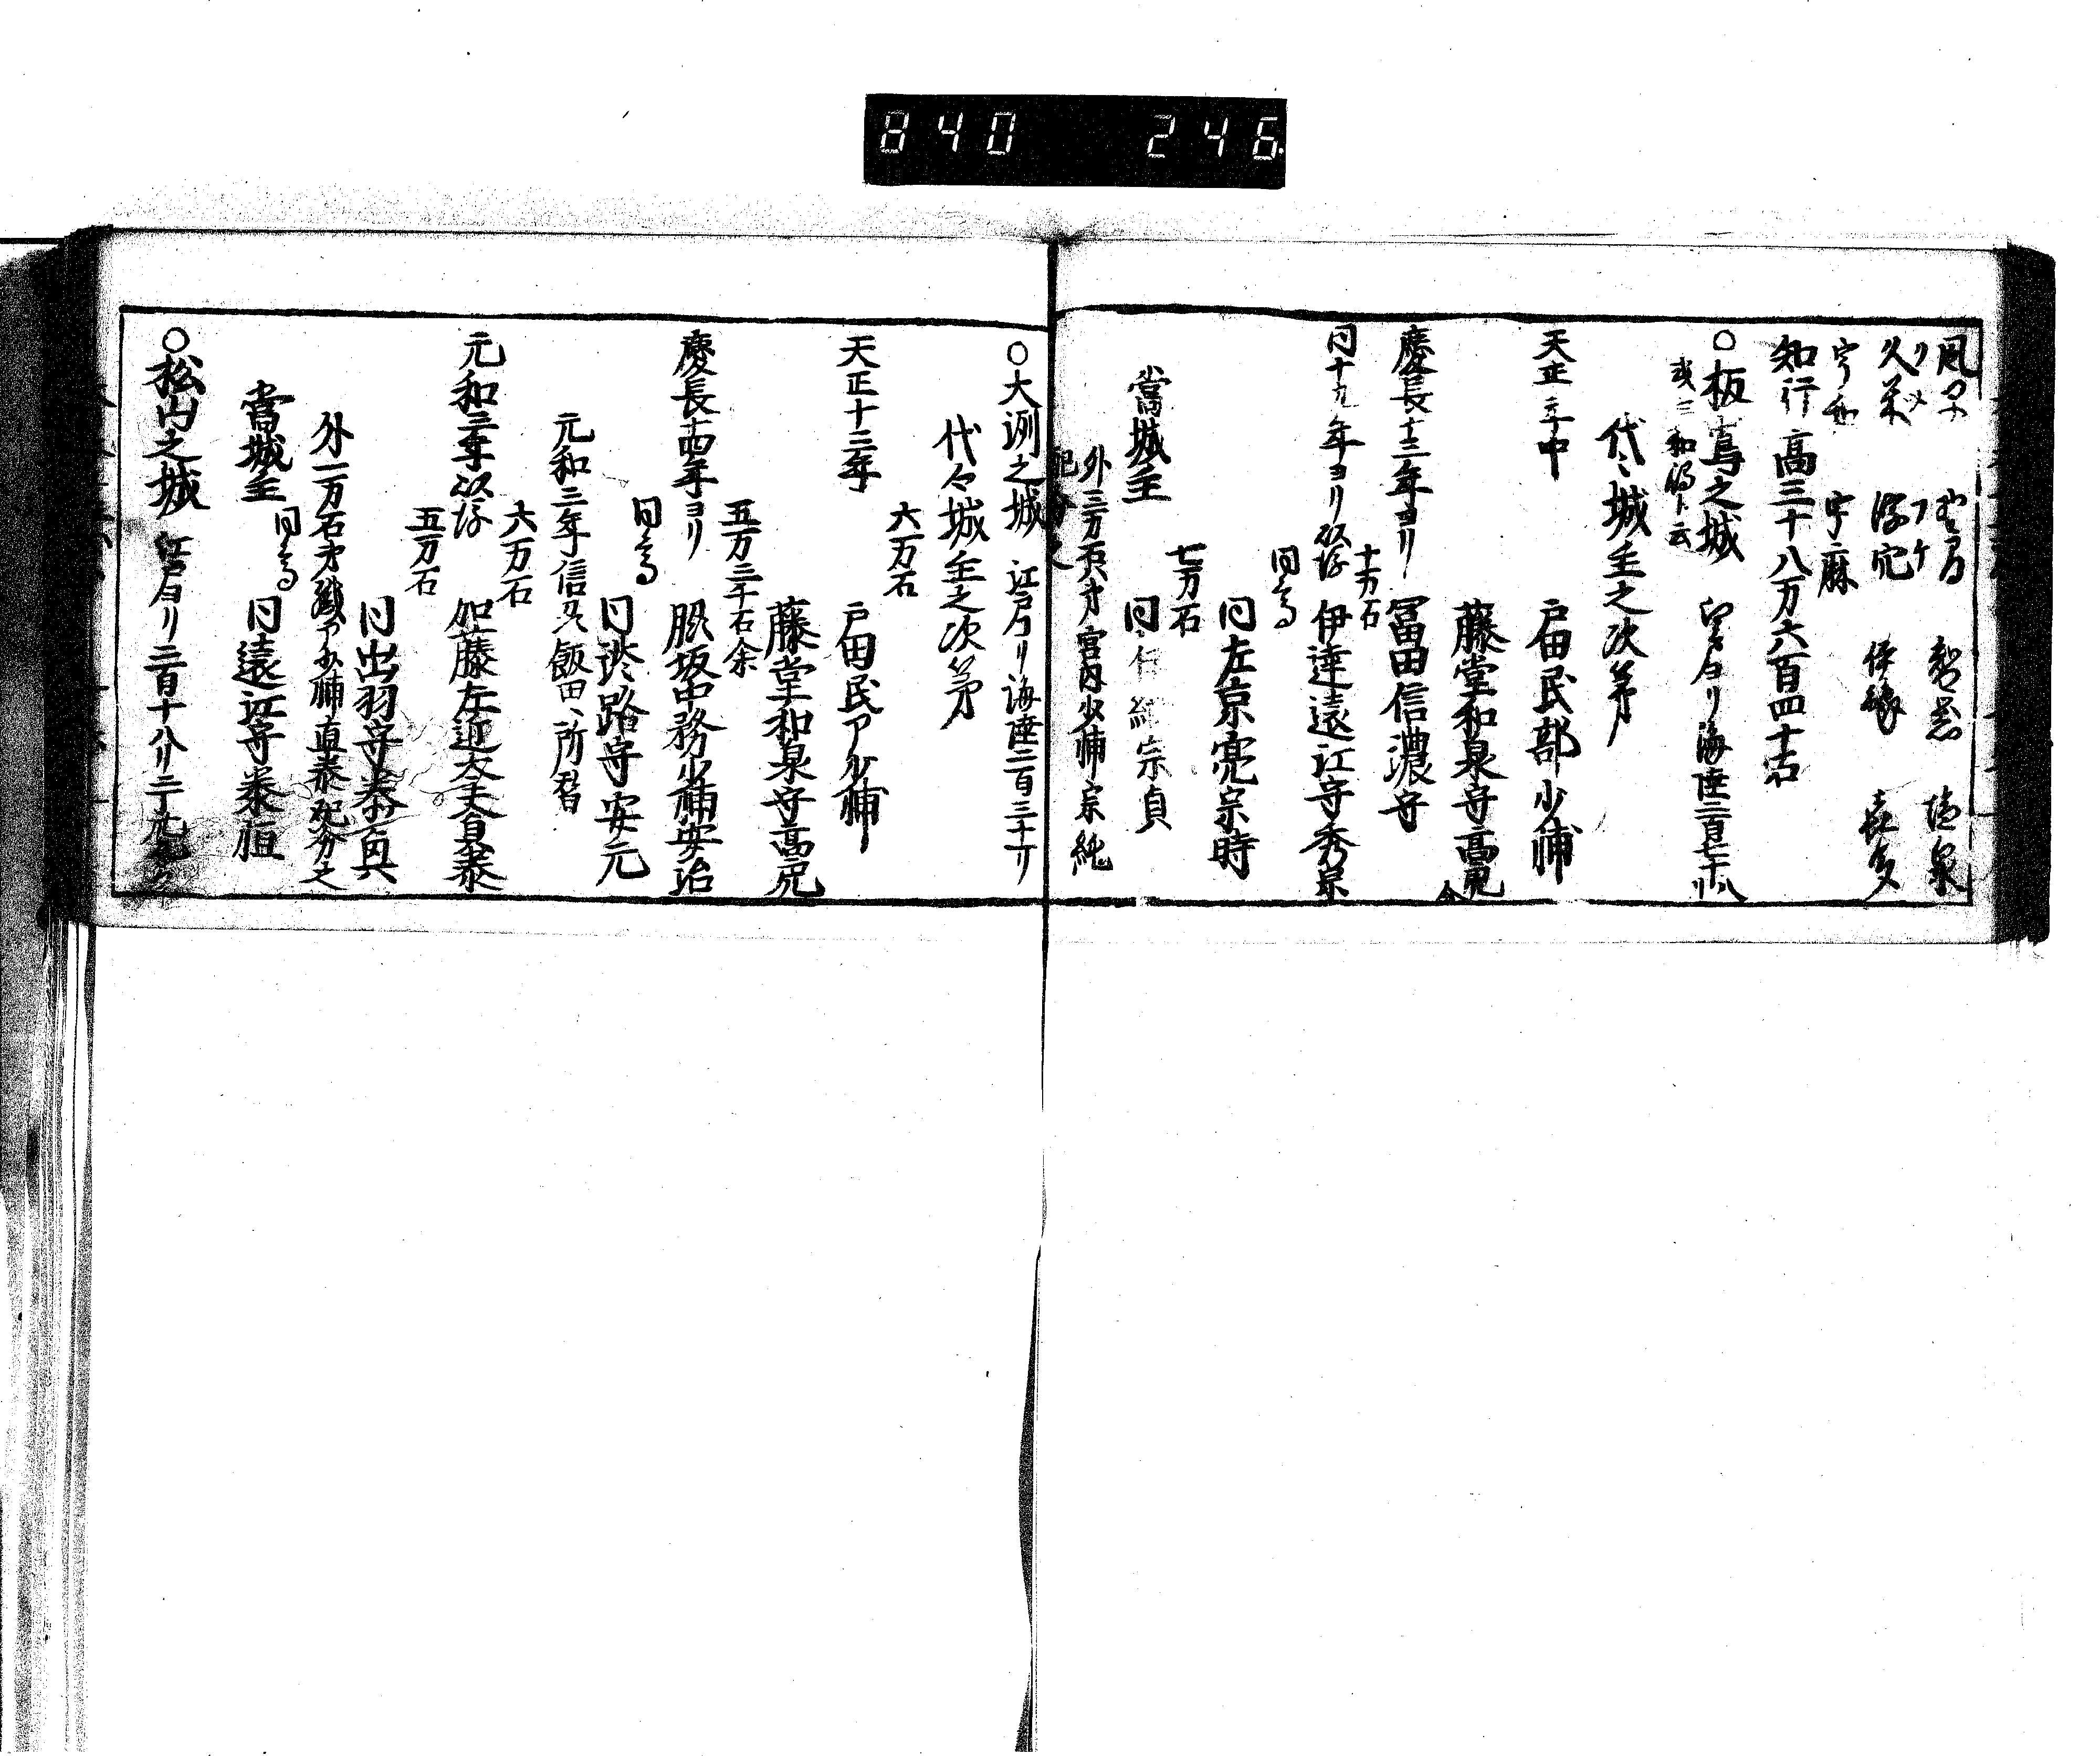 840 246
風早 野間 智𦮷 温泉
久米 浮穴 伊豫 喜多
宇和 宇麻
知行高三十八万六百四十石
○板嶌之城 江戸ヨリ海陸二百七十八リ
代〻城主之次第
天正年中 戸田民部少輔
藤堂和泉守髙虎
慶長十三年ヨリ 冨田信濃守
十万石
同十九年ヨリ 伊達遠江守秀宗
同高
同左京亮宗時
七万石
當城主 同 宗貞
外三万石 宮内少輔宗純
配分之
○大洲之城 江戸ヨリ海陸二百三十リ
代々城主之次第
六万石
天正十三年 戸田民ア少輔
藤堂和泉守髙虎
五万三千石余
慶長十四年ヨリ 脇坂中務少輔安治
同高
同淡路守安元
元和三年信久飯田へ所替
六万石
元和三年 加藤左近大夫貞泰
五万石
同出羽守泰興
外一万石 ア少輔直泰配分之
同高
當城主 同遠江守泰恒
○松山之城 江戸ヨリ二百十八リ二丁